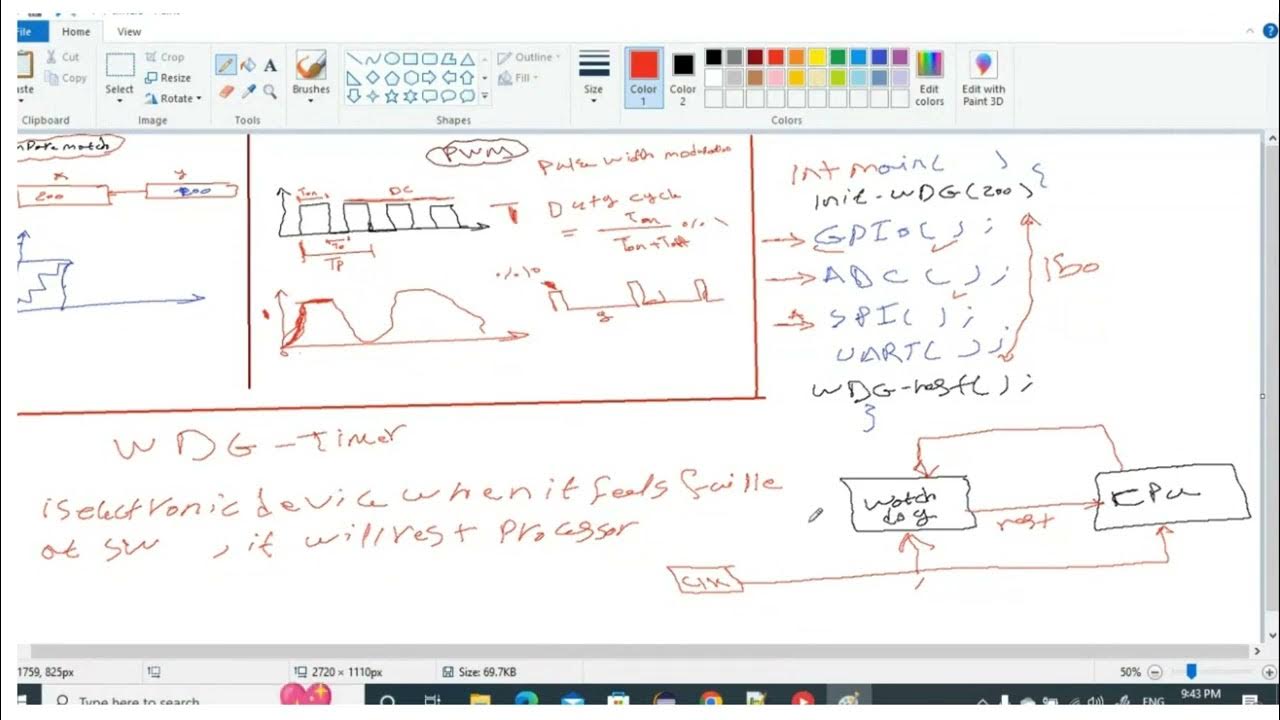 File
Home
View
Cut
Copy
Clipboard
Select
Crop
Resize
Rotate
Image
Tools
Brushes
Shapes
Outline
Fill
Size
Color 1
Color 2
Colors
Edit colors
Edit with Paint 3D
match
x
y
200
PWM
Pulse width modulation
Ton
DC
Tp
Duty cycle
= Ton / Ton+Toff %
int main( ) {
init-WDG(200)
GPIO( );
ADC ( );
SPI( );
UART( );
WDG-rest( );
}
150
WDG-Timer
is electronic device when it feels faille
at SW , it will rest processor
watch dog
rest
CPU
CLK
1759, 825px
2720 × 1110px
Size: 69.7KB
50%
Type here to search
ENG
9:43 PM